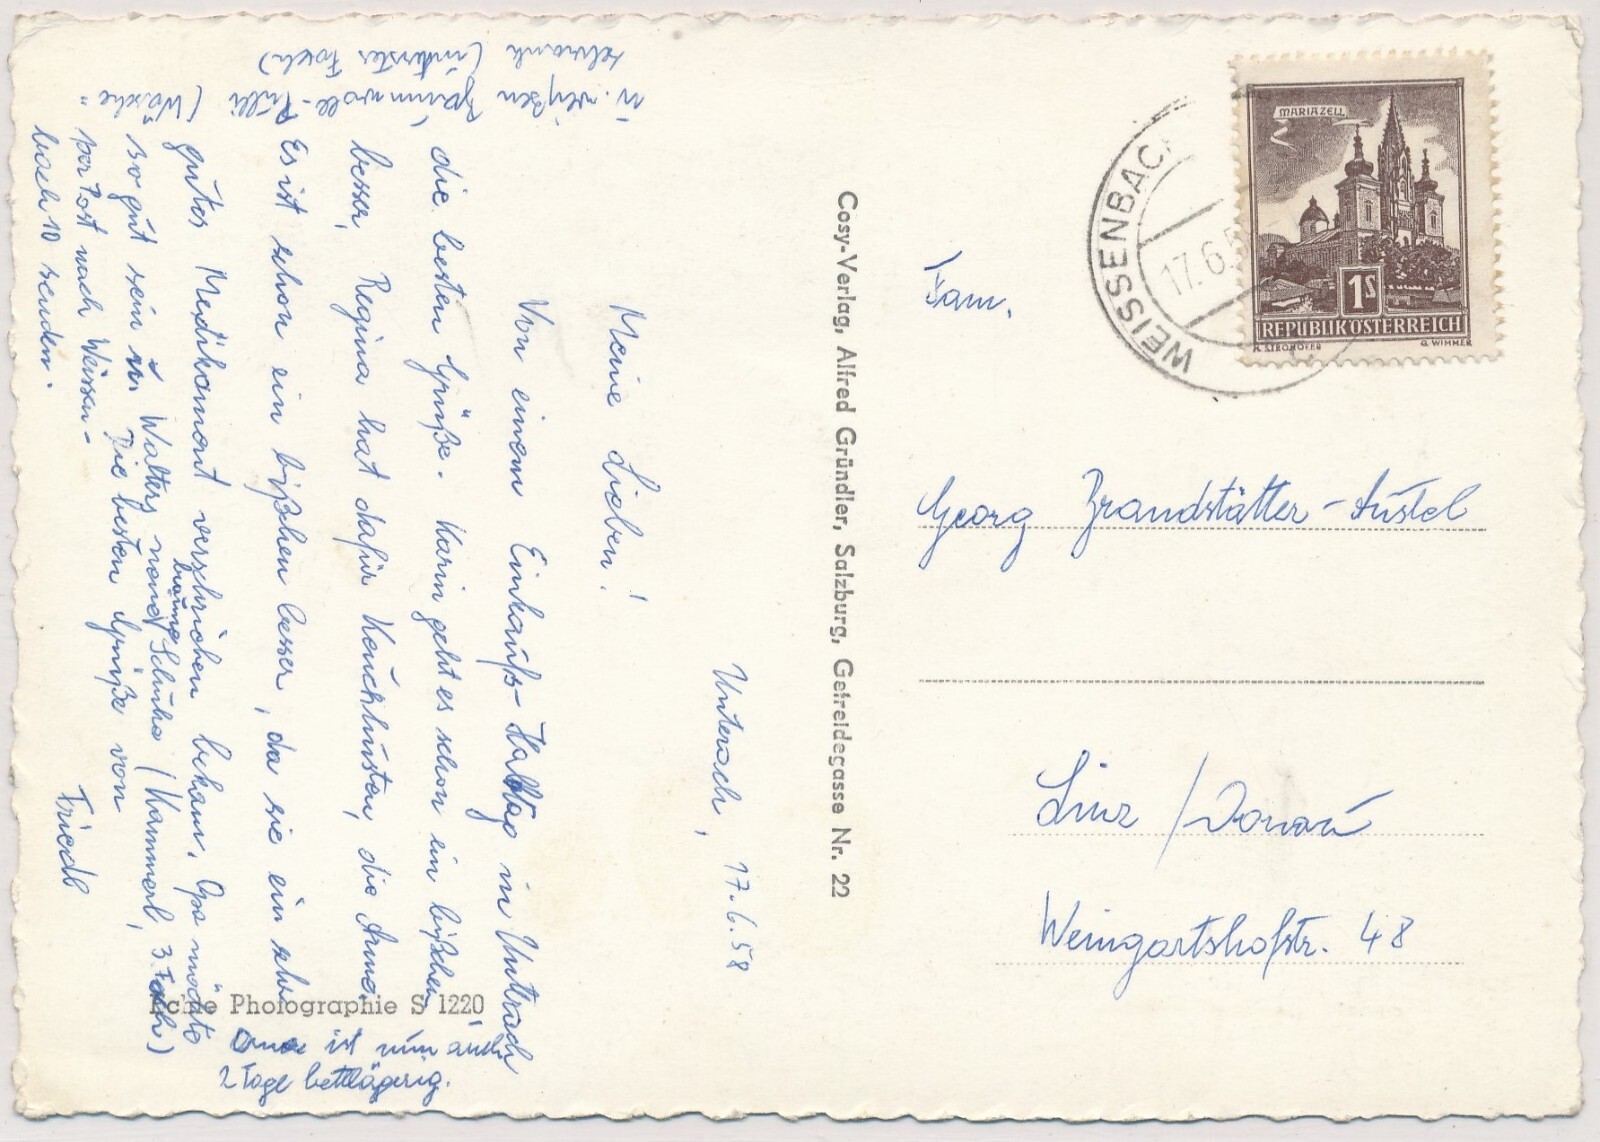 Unterach, 17.6.58
Meine Lieben!
Von einem Einkaufs-Halbtag in Unterach
die besten Grüße. Karin geht es schon ein bißchen
besser, Regina hat dafür Keuchhusten, die Arme.
Es ist schon ein bißchen besser, da sie ein sehr
gutes Medikament verschrieben bekam. Opa möchte
so gut sein u. Walters braune
Schuhe (Kammerl, 3. Fach)
u. weißen Baumwoll-Pulli (Wäsche-
schrank (unterstes Fach)
per Post nach Weissen-
bach 10 senden.
Die besten Grüße von
Friedl
Oma ist nun auch
2 Tage bettlägerig.
Echte Photographie S 1220
Cosy-Verlag, Alfred Gründler, Salzburg, Getreidegasse Nr. 22
WEISSENBACH
17.6.5
MARIAZELL
1S
REPUBLIK ÖSTERREICH
R. STROHOFER
G. WIMMER
Fam.
Georg Brandstätter-Austel
Linz / Donau
Weingartshofstr. 48